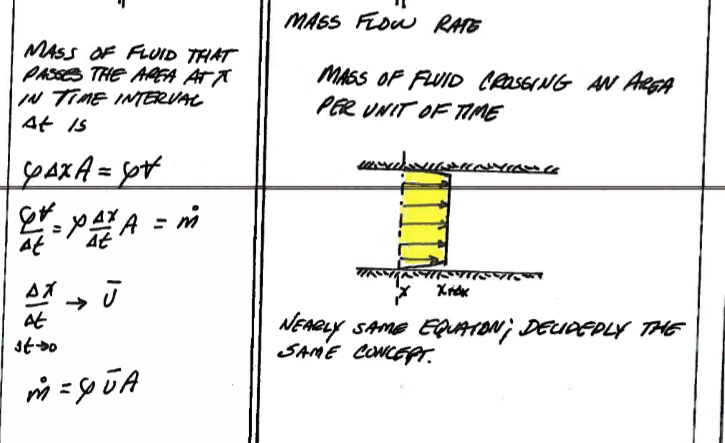 MASS OF FLUID THAT
PASSES THE AREA AT x
IN TIME INTERVAL
Δt IS
ρΔxA = ρV
ρV/Δt = ρ Δx/Δt A = ṁ
Δx/Δt → Ū
Δt→0
ṁ = ρŪA
MASS FLOW RATE
MASS OF FLUID CROSSING AN AREA
PER UNIT OF TIME
x x+Δx
NEARLY SAME EQUATION; DECIDEDLY THE
SAME CONCEPT.